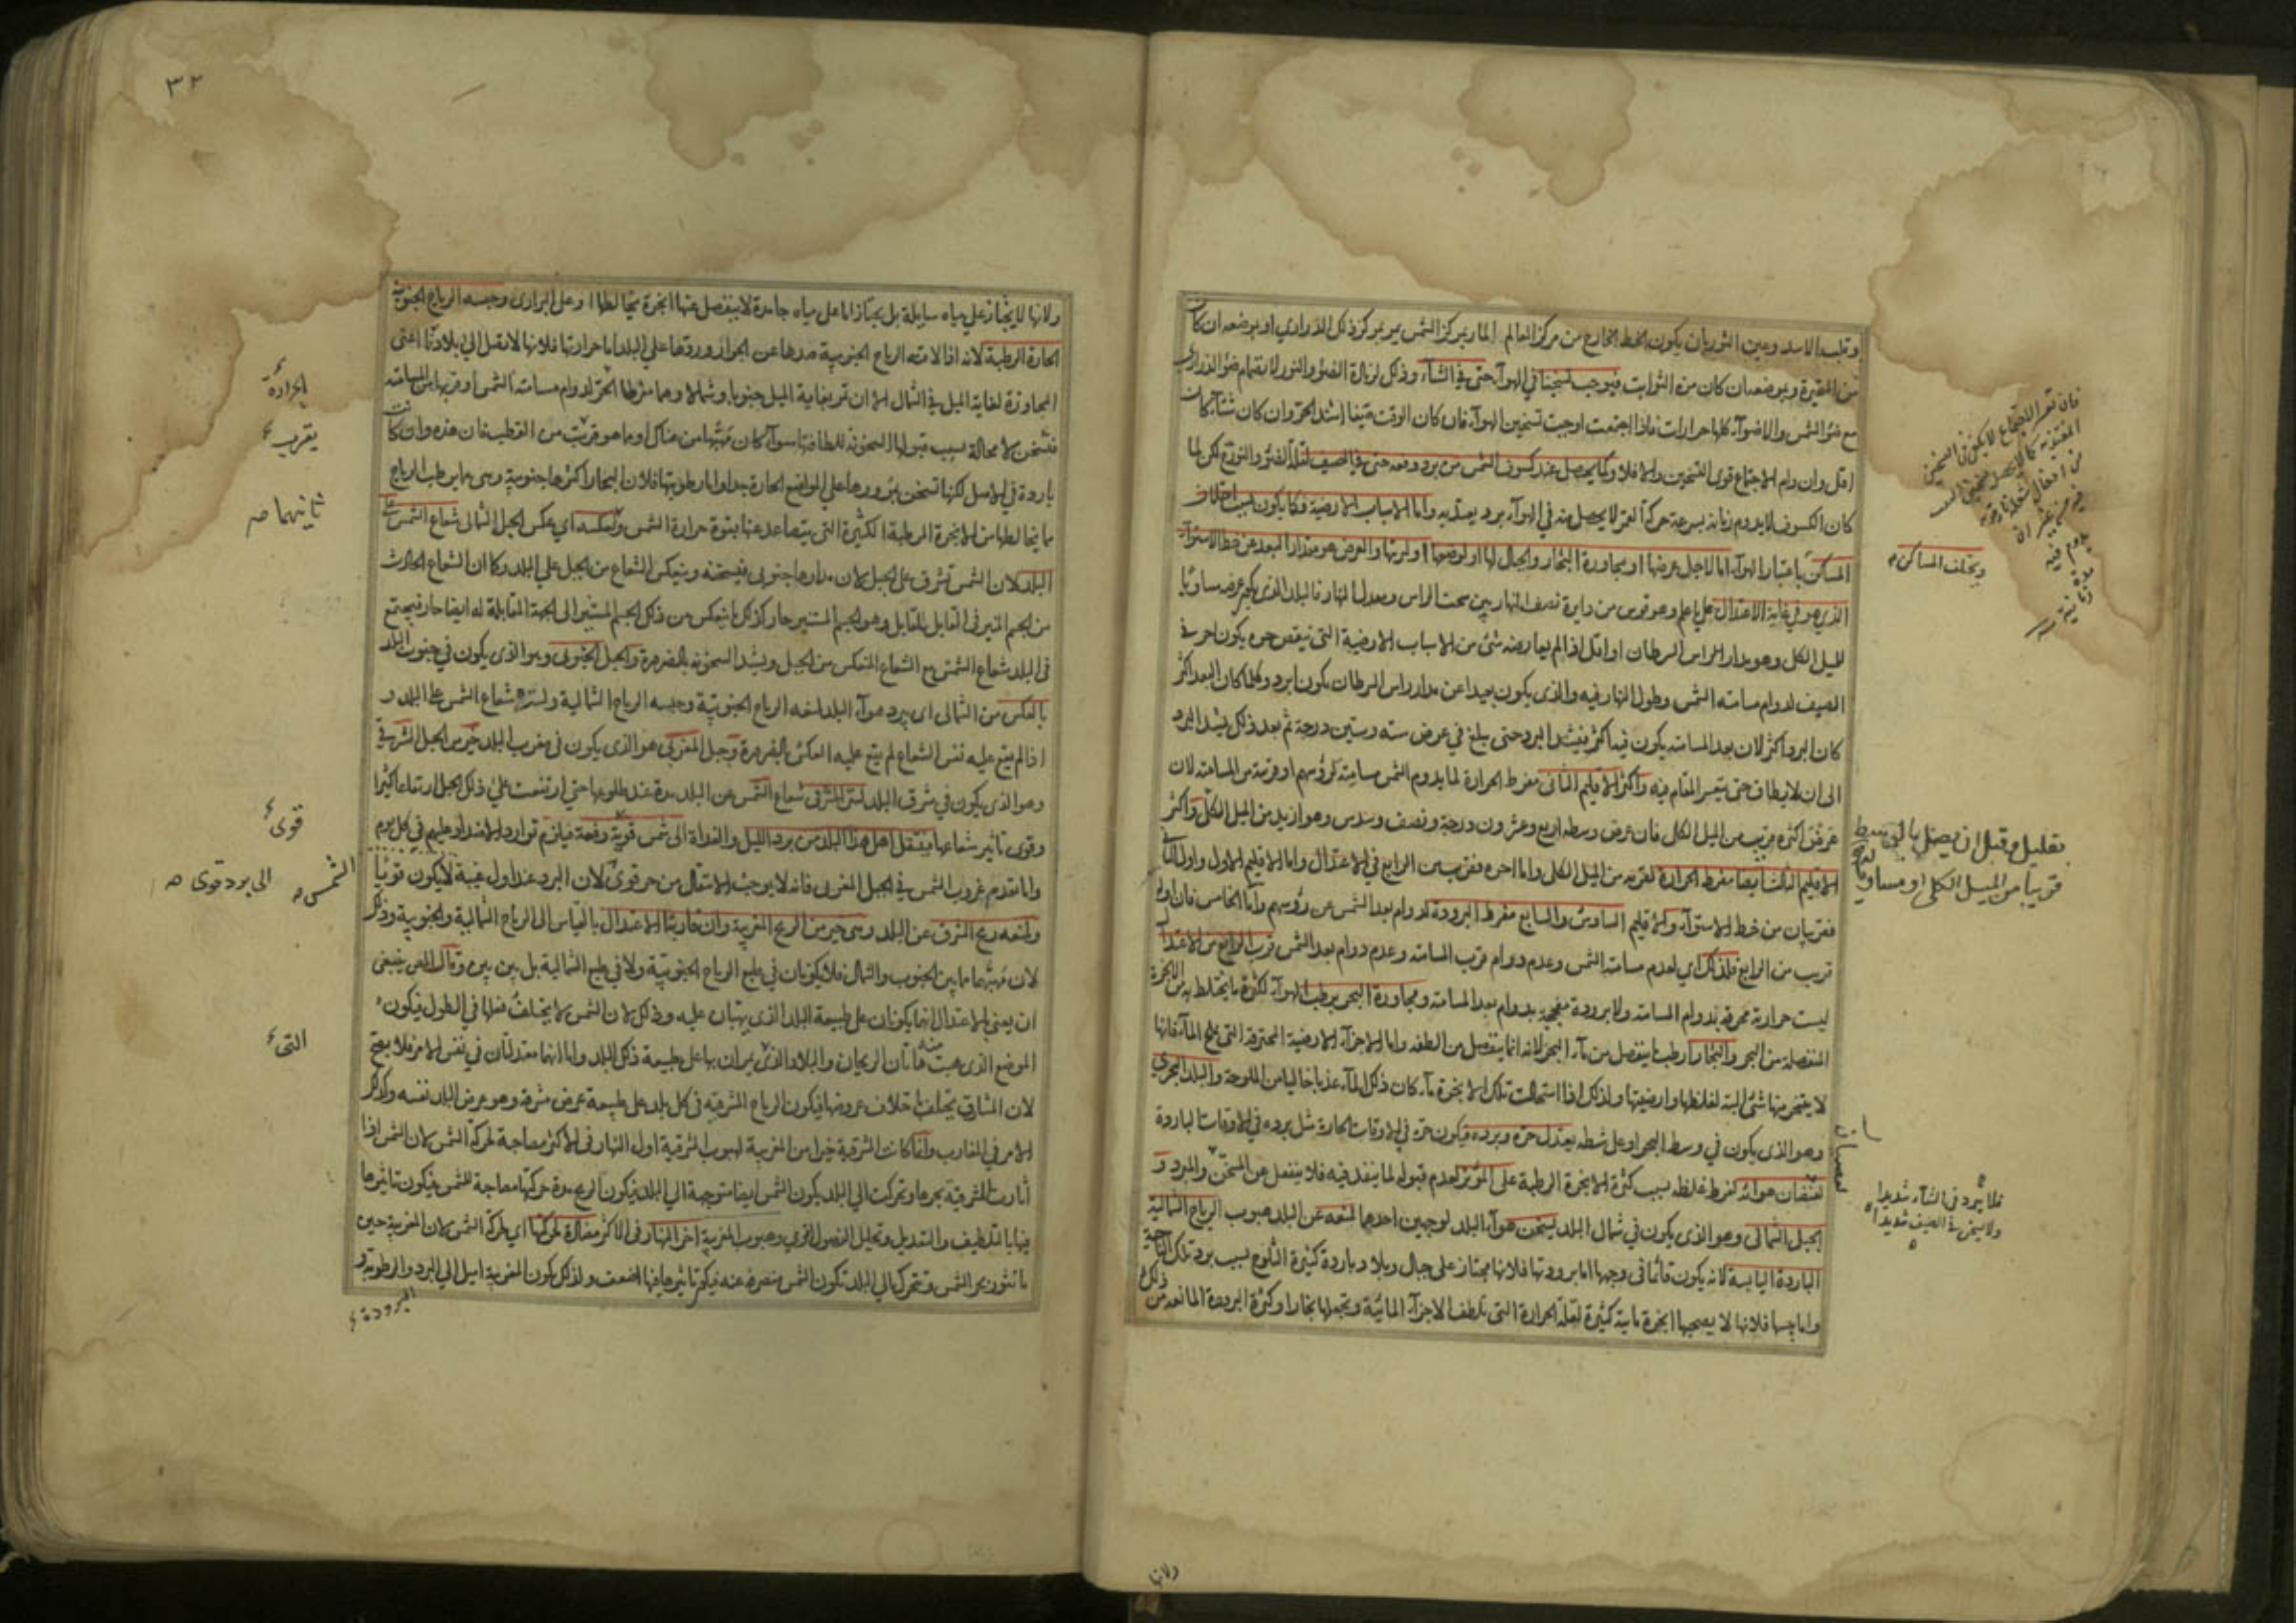 وقلب الاسد وعين الثور بان يكون الخط الخارج من مركز العالم المار بمركز الشمس يمر بمركز ذلك الدراري او بموضعه ان كان
من المتحيرة وبموضعه ان كان من الثوابت فيوجب تسخينا في الهوآء حتى في الشتآء وذلك لزيادة الضوء والنور لانضمام ضوء الدراري
مع ضوء الشمس والاضوآء كلها حرارات فاذا اجتمعت اوجبت تسخين الهوآء فان كان الوقت صيفا اشتد الحر وان كان شتآء كان
اقل وان دام الاجتماع قوى التسخين والا فلا وكما يحصل عند كسوف الشمس من برد ودفعه حتى في الصيف لقلة الضوء والنور لكن لما
كان الكسوف لا يدوم زمانه بسرعة حركة القمر لا يحصل منه في الهوآء برد يعتد به واما الاسباب الارضية فكما يكون بسبب اختلاف
المساكن باعتبار الهوآء اما لاجل عرضها او مجاورة البحار والجبال لها او لوضعها او لتربتها والعرض هو مقدار البعد عن خط الاستوآء
الذي هو في غاية الاعتدال على ما علم وهو قوس من دايرة نصف النهار بين سمت الراس ومعدل النهار فالبلد الذي يكون عرضه مساويا
للميل الكلي وهو مدار راس السرطان او اقل اذا لم يعارضه شئ من الاسباب الارضية التي تنقص حره يكون احر في
الصيف لدوام مسامتة الشمس وطول النهار فيه والذي يكون بعيدا عن مدار راس السرطان يكون ابرد وكلما كان البعد اكثر
كان البرد اكثر لان بعد المسامتة يكون فيه اكثر فيشتد البرد حتى يبلغ في عرض سته وستين درجة ثم بعد ذلك يشتد البرد
الى ان لا يطاق حتى يتعسر المقام فيه واكثر الاقليم الثاني مفرط الحرارة لما يدوم الشمس مسامتة لرؤسهم او قريبة من المسامتة لان
عرض اكثره قريب من الميل الكلي فان عرض وسطه اربع وعشرون درجة ونصف وسدس وهو ازيد من الميل الكلي واكثر
الاقليم الثالث ايضا مفرط الحرارة لقربه من الميل الكلي واما اخره فقريب من الرابع في الاعتدال واما الاقليم الاول واول الثاني
فقريبان من خط الاستوآء والاقليم السادس والسابع مفرط البرودة لدوام بعد الشمس عن رؤسهم واما الخامس فان اوله
قريب من الرابع فلذلك اي لعدم مسامتة الشمس وعدم دوام قرب المسامتة وعدم دوام بعد الشمس قرب الرابع من الاعتدال
ليست حرارته محرقة بدوام المسامتة ولا برودته مفججة بدوام بعد المسامتة ومجاورة البحر يرطب الهوآء لكثرة ما يختلط به من الابخرة
المنفصلة من البحر والبخار رطب ما ينفصل من مآء البحر لانه انما ينفصل من الطفه واما الاجزآء الارضية المحترقة التي يملح المآء فانها
لا يتبخر منها شئ البتة لغلظها وارضيتها ولذلك اذا استحالت تلك الابخرة مآء كان ذلك المآء عذبا خاليا من الملوحة والبلد البحري
وهو الذي يكون في وسط البحر او على شطه يعتدل حره وبرده فيكون حره في الاوقات الحارة مثل برده في الاوقات الباردة
لعصيان هوائه لفرط غلظه بسبب كثرة الابخرة الرطبة على المؤثر لعدم قبوله لما ينفد فيه فلا ينفعل عن المسخن والمبرد و
الجبل الشمالى وهو الذي يكون في شمال البلد يسخن هوآء البلد لوجهين احدهما لمنعه عن البلد هبوب الرياح الشمالية
الباردة اليابسة لانه يكون قائما في وجهها اما برودتها فلانها تجتاز على جبال وبلاد باردة كثيرة الثلوج بسبب برد تلك الناحية
واما يبسها فلانها لا يصحبها ابخرة مائية كثيرة لقلة الحرارة التي تلطف الاجزآء المائية وتجعلها بخارا وكثرة البرودة المانعة من ذلك
ويختلف المساكن
بقليل وقبل ان يصل بالى وسط
قريبا من الميل الكلى او مساويا له
فلا يبرد فى الشتآء شديدا
ولا يسخن فى الصيف شديدا
ولانها
٣٢
ولانها لا يجتاز على مياه سايلة بل يجتاز اما على مياه جامدة لا ينفصل عنها ابخرة يخالطها او على البراري وحبسه الرياح الجنوبية
الحارة الرطبة لانه اذا لاقته الرياح الجنوبية صدها عن الجواز وردها على البلد اما حرارتها فلانها لا تصل الى بلادنا اعنى
المجاوزة لغاية الميل في الشمال الا ان تمر بغاية الميل جنوبا وشمالا وهما مفرطا الحر لدوام مسامتة الشمس او قربها من المسامتة
فتسخن لا محالة بسبب قبولها السخونة للطافتها سوآء كان مهبها من هناك او ما هو قريب من القطب فان هذه وان كانت
باردة في الاصل لكنها تسخن بمرورها على المواضع الحارة جدا واما رطوبتها فلان البحار اكثرها جنوبية وهى مما يرطب الرياح
بما يخالطها من الابخرة الرطبة الكثيرة التى يتصاعد عنها بقوة حرارة الشمس ولعكسه اي عكس الجبل الشمالى شعاع الشمس على
البلد لان الشمس تشرق على الجبل لان مدارها جنوبى فيسخنه وينعكس الشعاع من الجبل على البلد وكما ان الشعاع الحادث
من الجسم المنير فى القابل المقابل وهو الجسم المستنير حار كذلك ما ينعكس من ذلك الجسم المستنير الى الجهة المقابلة له ايضا حار فيجتمع
فى البلد شعاع الشمس مع الشعاع المنعكس من الجبل ويشتد السخونة بالضرورة والجبل الجنوبى وهو الذى يكون في جنوب البلد
بالعكس من الشمالى اى يبرد هوآء البلد لمنعه الرياح الجنوبية وحبسه الرياح الشمالية ولستره شعاع الشمس على البلد و
اذا لم يقع عليه نفس الشعاع لم يقع عليه العكس بالضرورة وجبل المغربى هو الذى يكون فى مغرب البلد خير من الجبل الشرقى
وهو الذى يكون في مشرق البلد لستر المشرقى شعاع الشمس عن البلد مدة عند طلوعها حتى ارتفعت على ذلك الجبل ارتفاعا كثيرا
وقوى تاثير شعاعها فينتقل اهل هذا البلد من برد الليل والغداة الى شمس قوية دفعة فيلزم توارد الاضداد عليهم فى كل يوم
واما تقدم غروب الشمس في الجبل المغربى فانه لا يوجب الانتقال من حر قوى لان البرد عند اول غيبة لا يكون قويا
ولمنعه ريح الشرق عن البلد وهى خير من الريح المغربية وان قاربتا الاعتدال بالقياس الى الرياح الشمالية والجنوبية وذلك
لان مهبهما ما بين الجنوب والشمال فلا يكونان في طبع الرياح الجنوبية ولا في طبع الشمالية بل بين بين وقال القرشى ينبغى
ان يعنى بالاعتدال انهما يكونان على طبيعة البلد الذى يهبان عليه وذلك لان الشمس لا يختلف فعلها فى الطول فيكون
الموضع الذى هبت منه هاتان الريحان والبلاد الذى يمران بها على طبيعة ذلك البلد واما انهما معتدلتان في نفس الامر فلا يصح
لان المشارق يختلف باختلاف عروضها فيكون الرياح المشرقية فى كل بلد على طبيعة عرض مشرقه وهو عرض البلد نفسه وكذلك
الامر في المغارب وانما كانت الشرقية خيرا من المغربية لهبوب الشرقية اول النهار فى الاكثر مصاحبة لحركة الشمس لان الشمس اذا
اثارت المشرقية بحرها وتحركت الى البلد يكون الشمس ايضا متوجهة الى البلد فيكون الريح مدة حركتها مصاحبة للشمس فيكون تاثيرها
فيها بالتلطيف والتعديل وتحليل الفضول اقوى وهبوب المغربية اخر النهار فى الاكثر مضادة لحركتها اى لحركة الشمس لان المغربية حين
ما تثور بحر الشمس وتتحرك الى البلد تكون الشمس منصرفة عنه فيكون تاثيرها فيها اضعف ولذلك كون المغربية اميل الى البرد والرطوبة و
الحرارة
يقرب
ثانيهما
قوى
الشمس
الى برد قوى
التى
البرودة